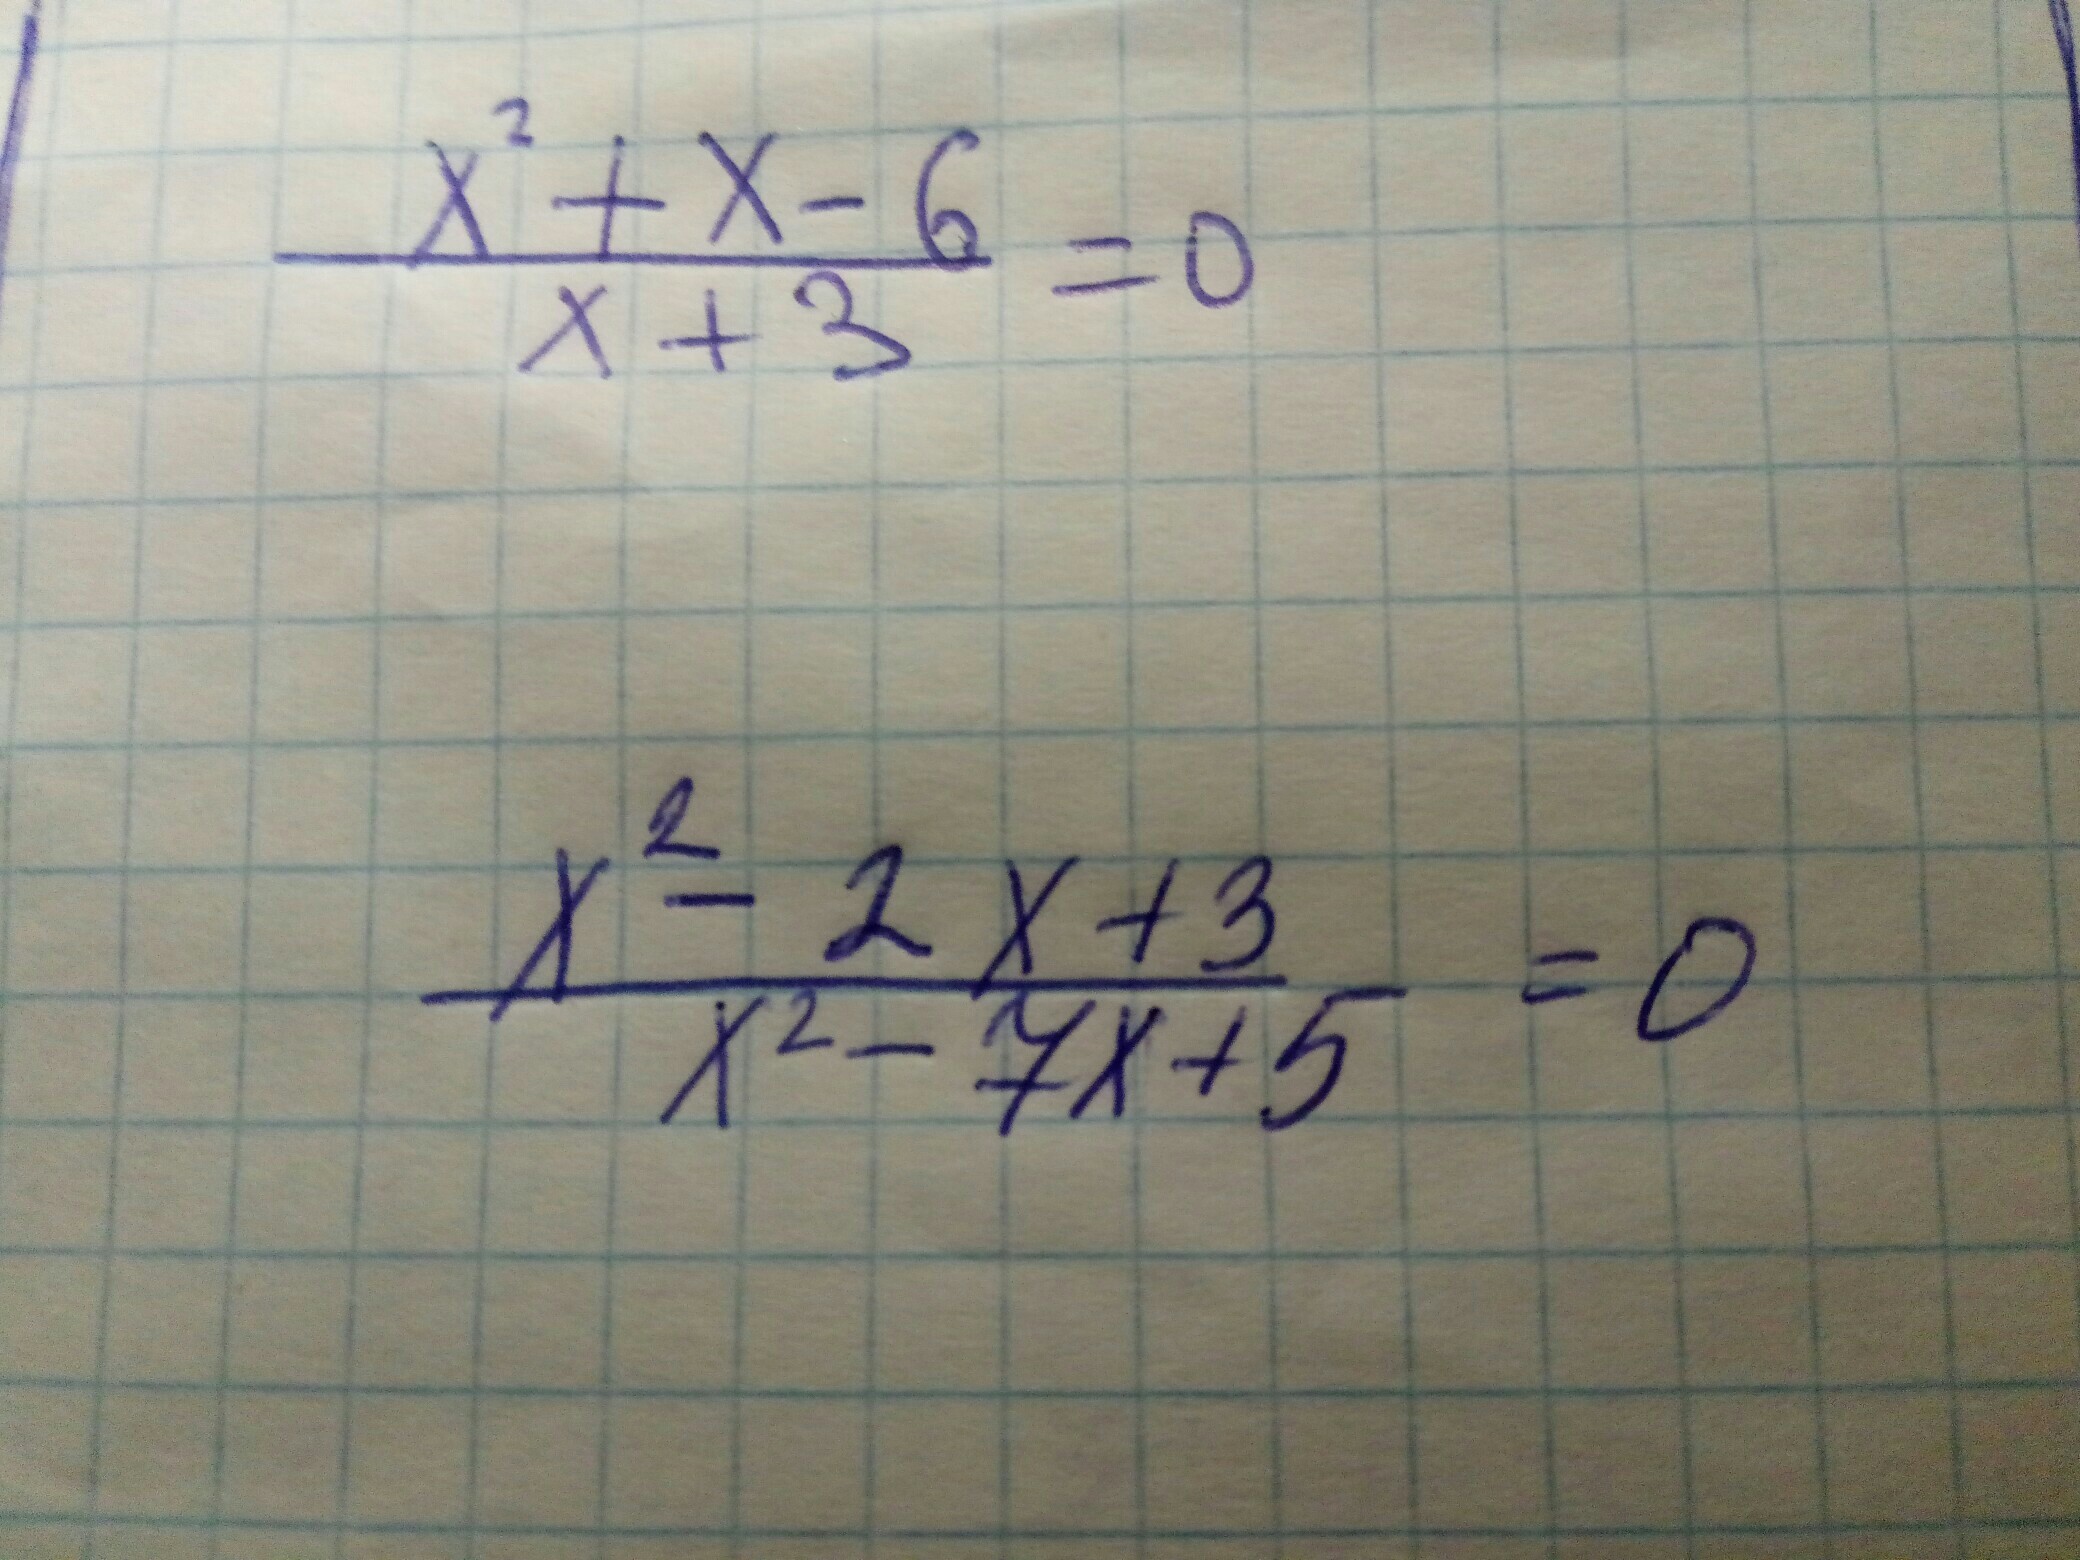 x² + x - 6
x + 3
= 0
x² - 2x + 3
x² - 7x + 5
= 0